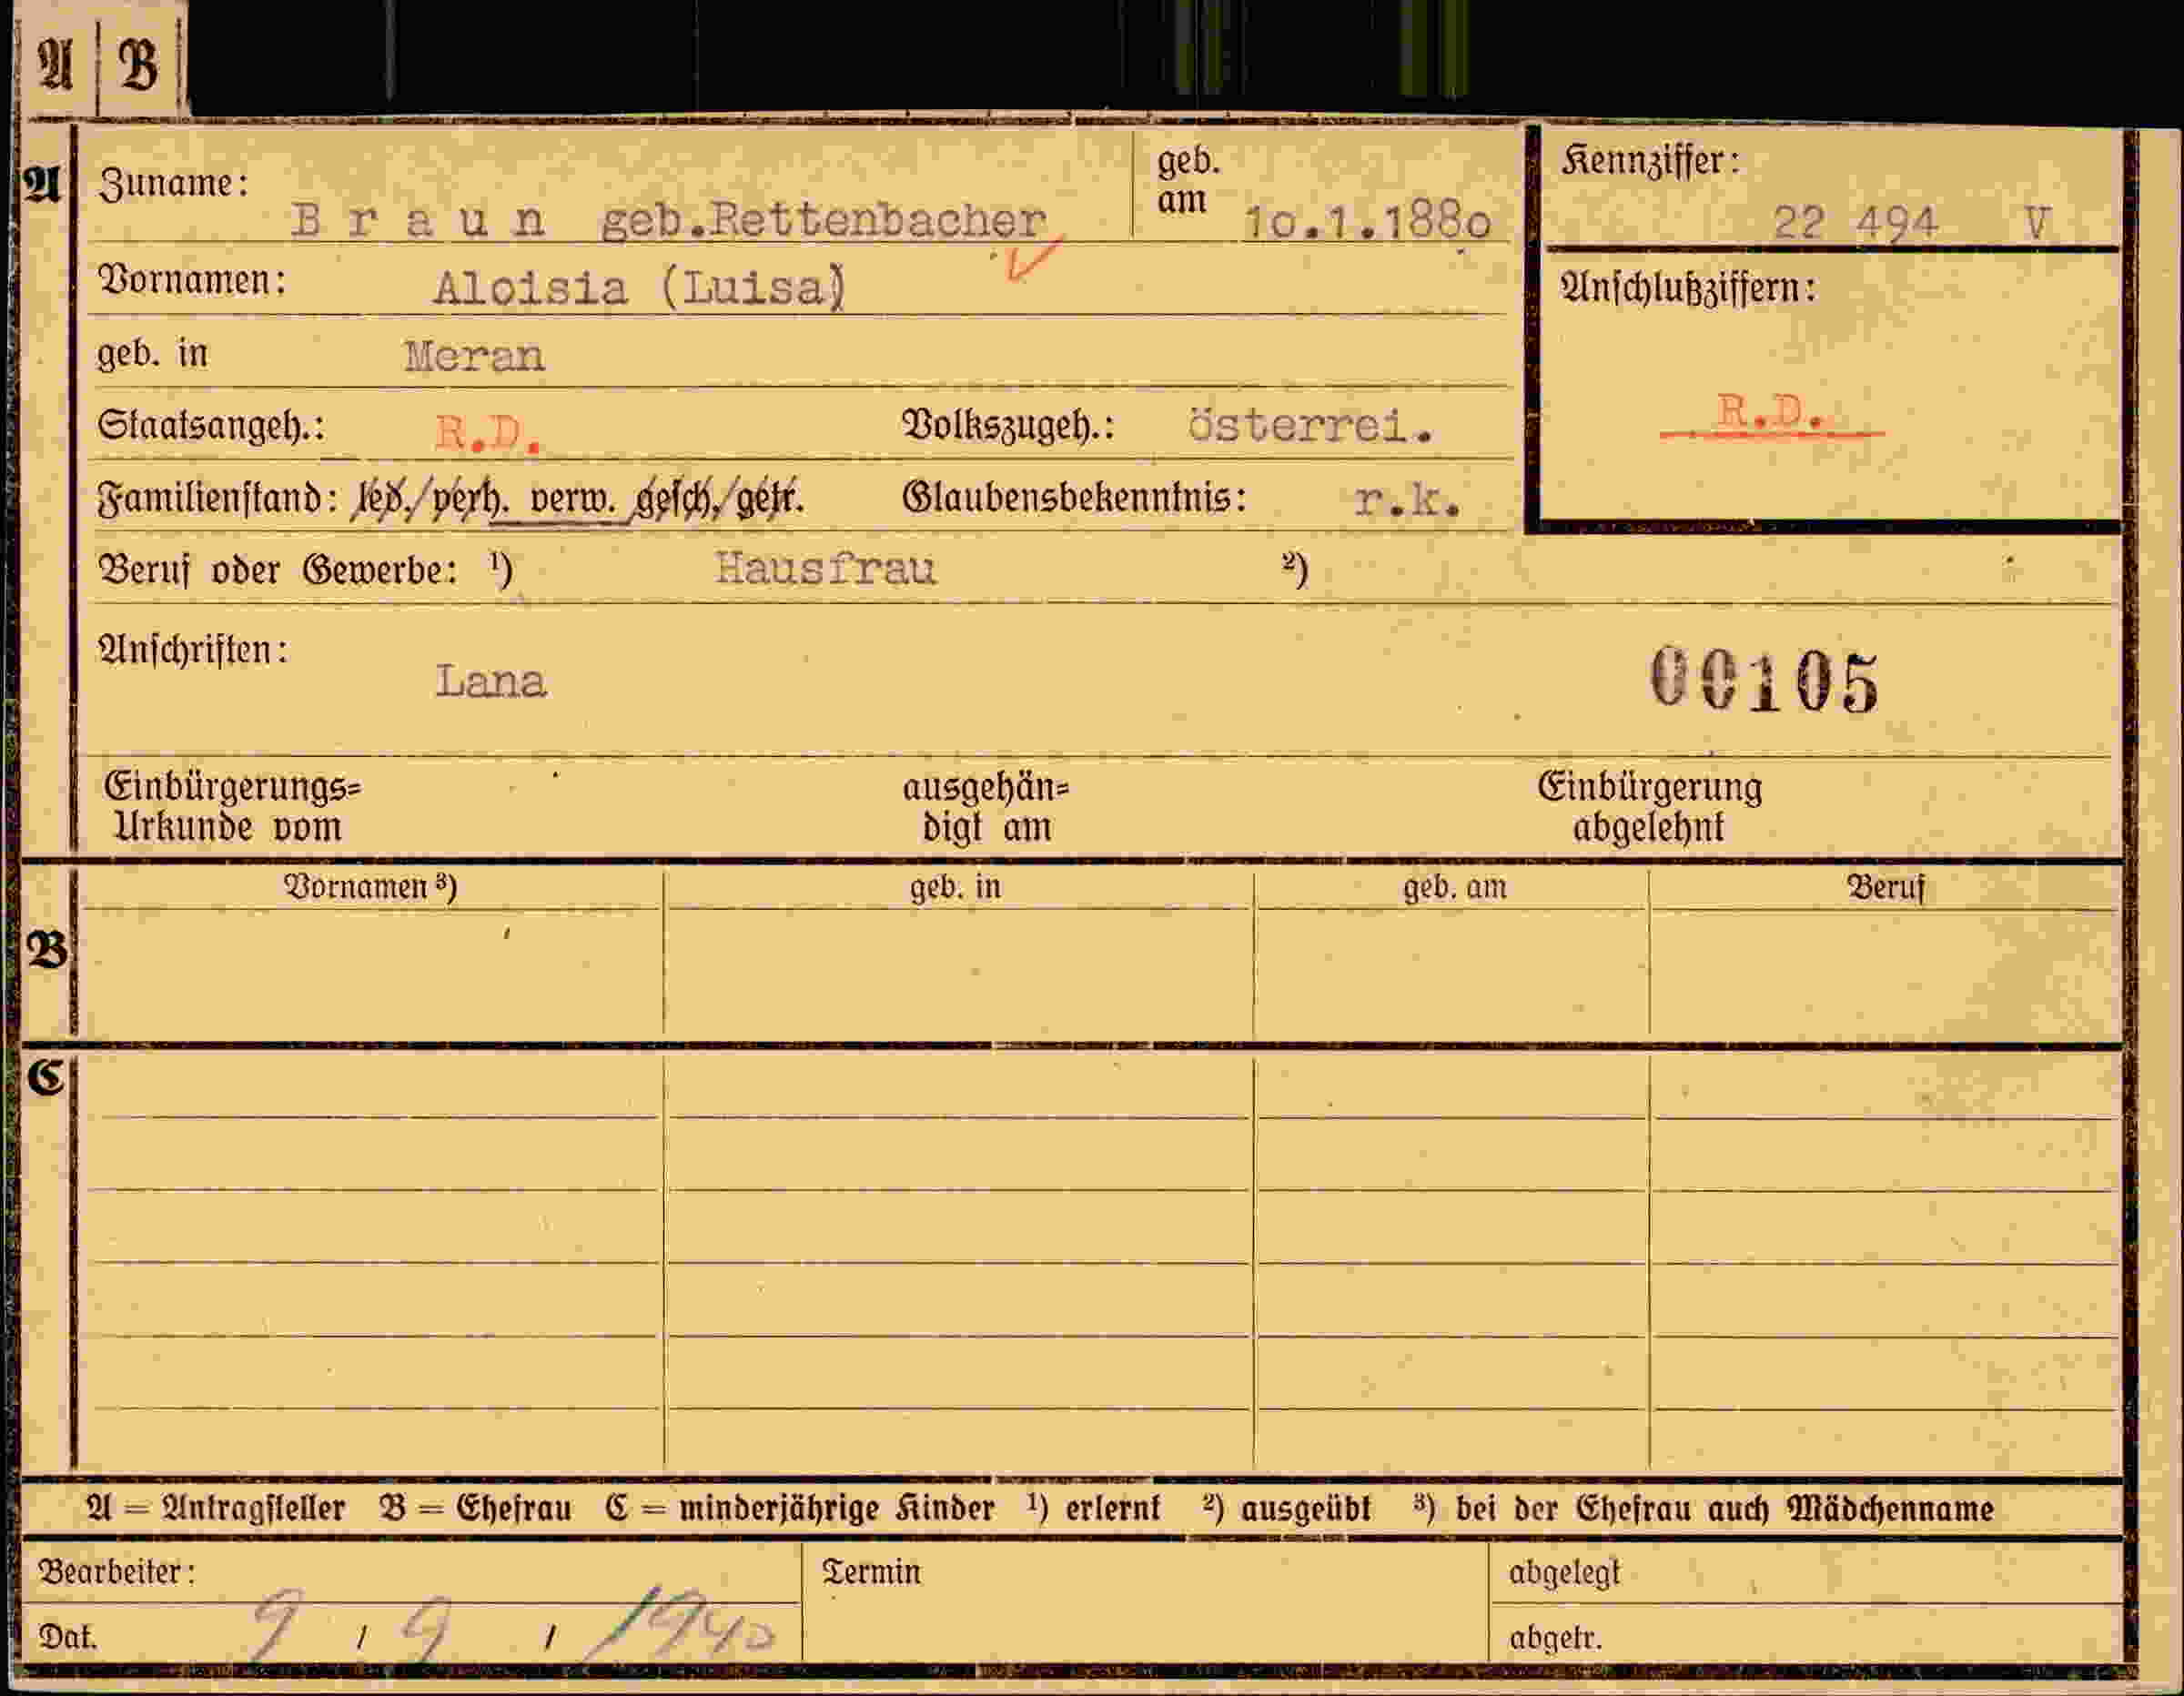 A B
A Zuname: Braun geb.Rettenbacher geb. am 10.1.1880 Kennziffer: 22 494 V
Vornamen: Aloisia (Luisa) Anschlußziffern:
geb. in Meran
Staatsangeh.: R.D. Volkszugeh.: österrei. R.D.
Familienstand: led./verh. verw. gesch./getr. Glaubensbekenntnis: r.k.
Beruf oder Gewerbe: ¹) Hausfrau ²)
Anschriften: Lana 00105
Einbürgerungs= ausgehän= Einbürgerung
Urkunde vom digt am abgelehnt
Vornamen ³) geb. in geb. am Beruf
B
C
A = Antragsteller B = Ehefrau C = minderjährige Kinder ¹) erlernt ²) ausgeübt ³) bei der Ehefrau auch Mädchenname
Bearbeiter: Termin abgelegt
Dat. 9 / 9 / 1940 abgetr.